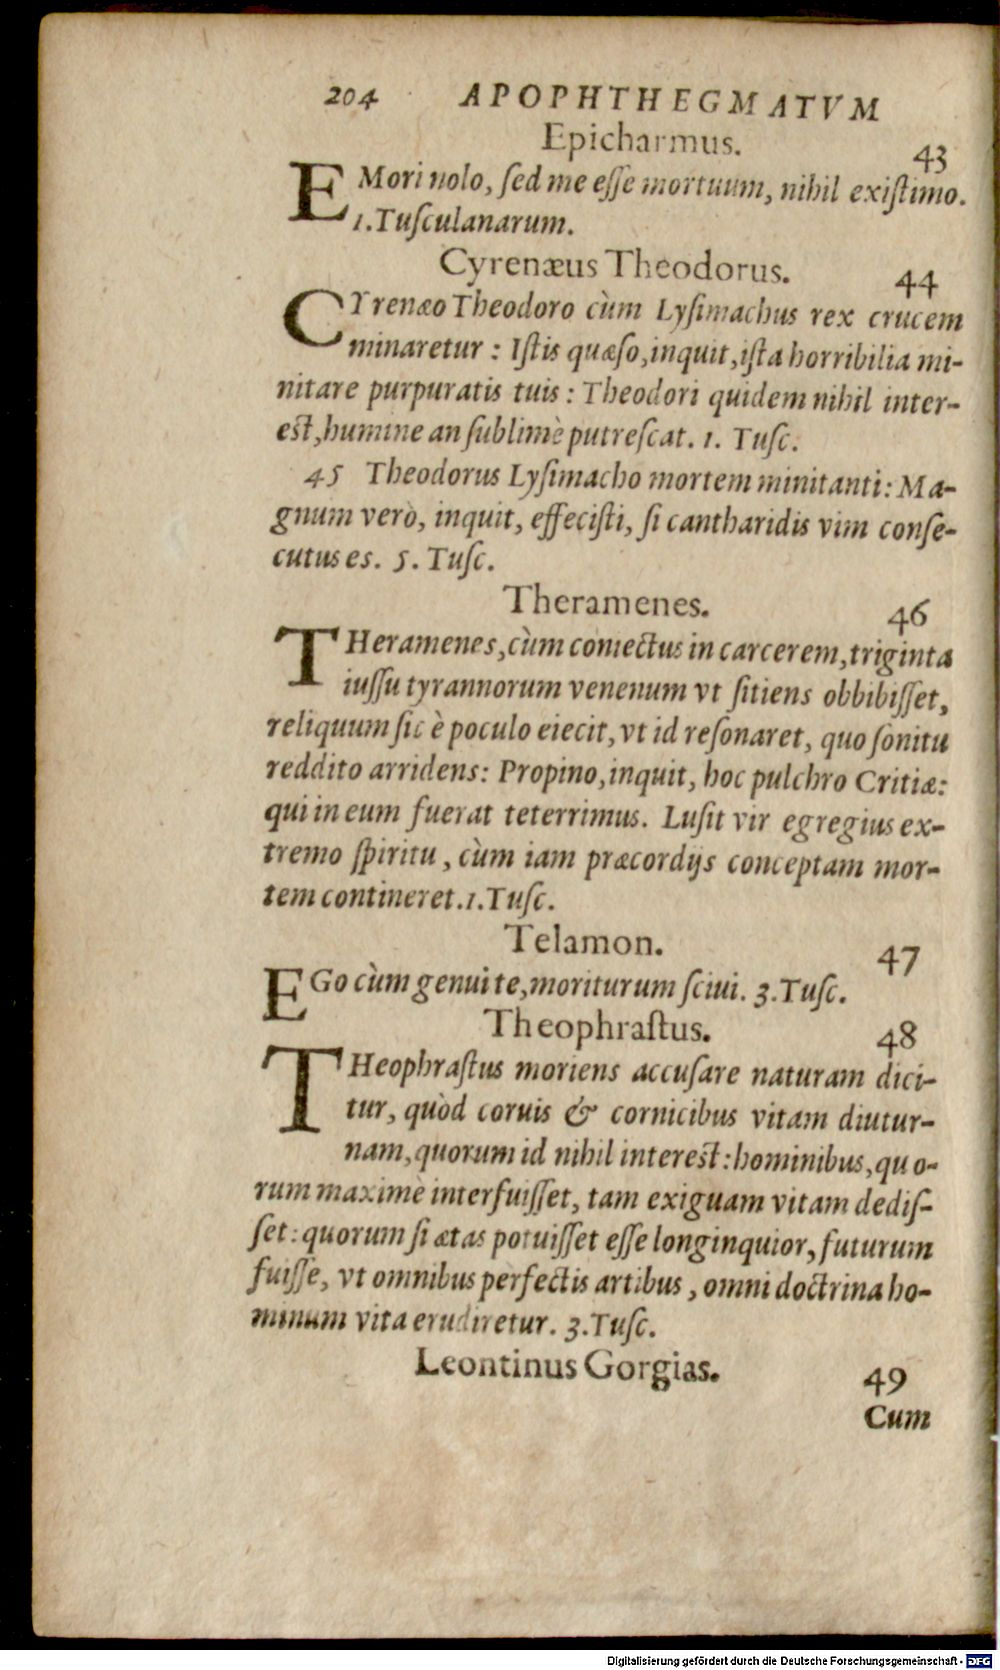 204 APOPHTHEGMATVM
Epicharmus. 43
EMori nolo, ſed me eſſe mortuum, nihil exiſtimo.
1. Tuſculanarum.
Cyrenæus Theodorus. 44
CYrenæo Theodoro cùm Lyſimachus rex crucem
minaretur : Iſtis quæſo, inquit, iſta horribilia mi-
nitare purpuratis tuis : Theodori quidem nihil inter-
eſt, humine an ſublimè putreſcat. 1. Tuſc.
45 Theodorus Lyſimacho mortem minitanti: Ma-
gnum verò, inquit, effeciſti, ſi cantharidis vim conſe-
cutus es. 5. Tuſc.
Theramenes. 46
THeramenes, cùm coniectus in carcerem, triginta
iuſſu tyrannorum venenum vt ſitiens obbibiſſet,
reliquum ſic è poculo eiecit, vt id reſonaret, quo ſonitu
reddito arridens: Propino, inquit, hoc pulchro Critiæ:
qui in eum fuerat teterrimus. Luſit vir egregius ex-
tremo ſpiritu, cùm iam præcordijs conceptam mor-
tem contineret. 1. Tuſc.
Telamon. 47
EGo cùm genui te, moriturum ſciui. 3. Tuſc.
Theophraſtus. 48
THeophraſtus moriens accuſare naturam dici-
tur, quòd coruis & cornicibus vitam diutur-
nam, quorum id nihil intereſt: hominibus, quo-
rum maximè interfuiſſet, tam exiguam vitam dediſ-
ſet: quorum ſi ætas potuiſſet eſſe longinquior, futurum
fuiſſe, vt omnibus perfectis artibus, omni doctrina ho-
minum vita erudiretur. 3. Tuſc.
Leontinus Gorgias. 49
Cum
Digitalisierung gefördert durch die Deutsche Forschungsgemeinschaft - DFG